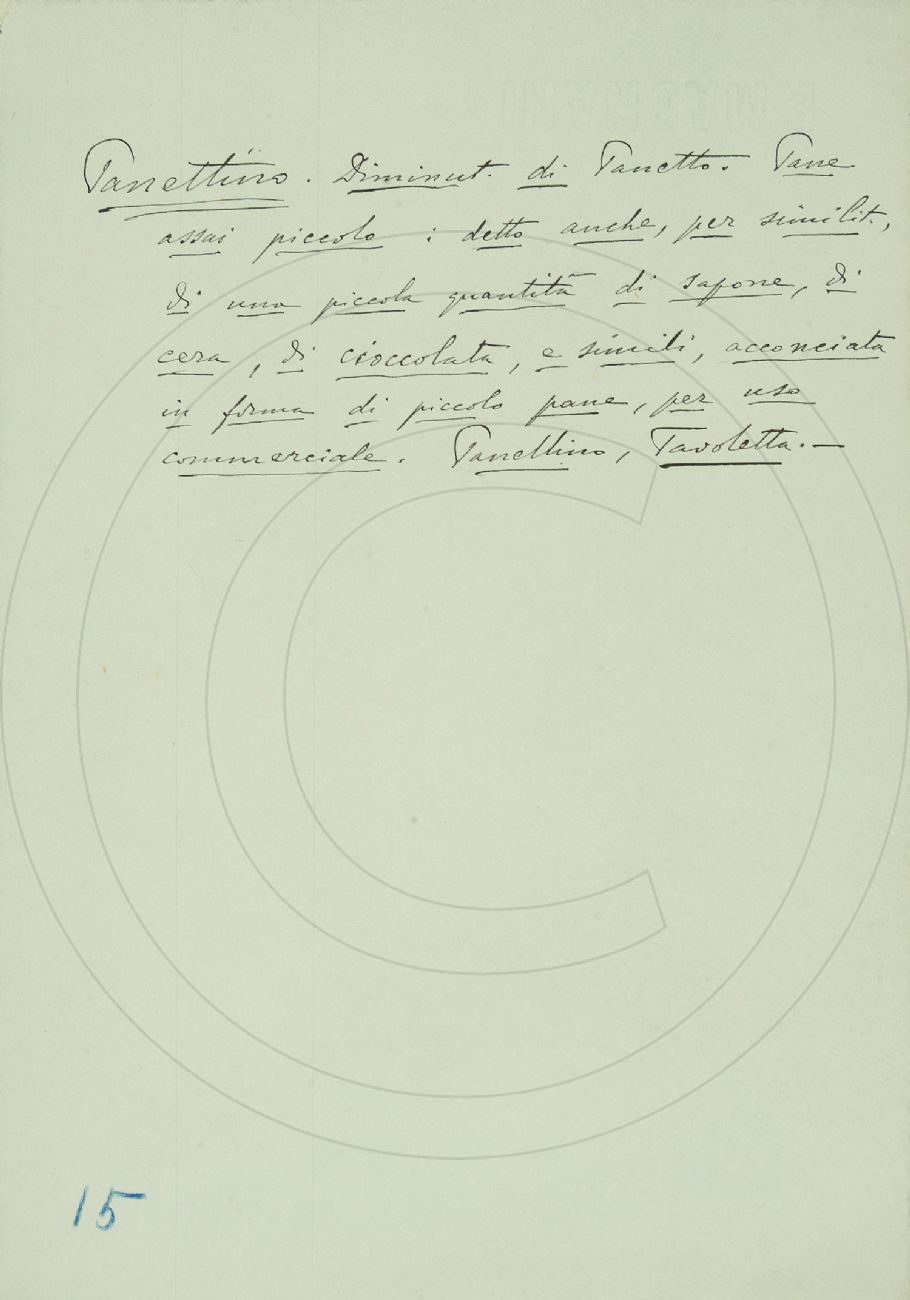 Panettino. Diminut. di Panetto. Pane
assai piccolo : detto anche, per similit.,
di una piccola quantità di sapone, di
cera, di cioccolata, e simili, acconciata
in forma di piccolo pane, per uso
commerciale. Panellino, Tavoletta.—
15